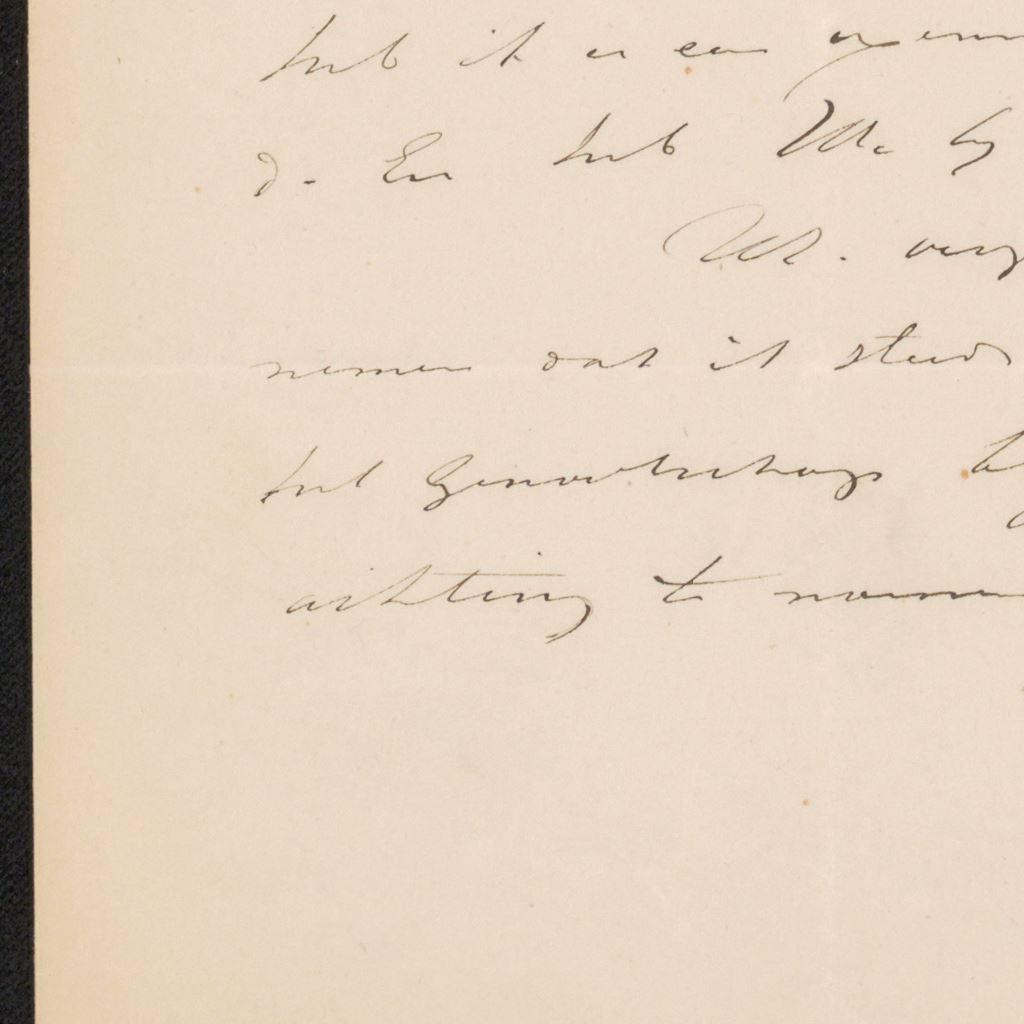 heb ik er een
d. En heb Me by
M.
nemen dat ik steeds
het Genootschap
achting te noemen